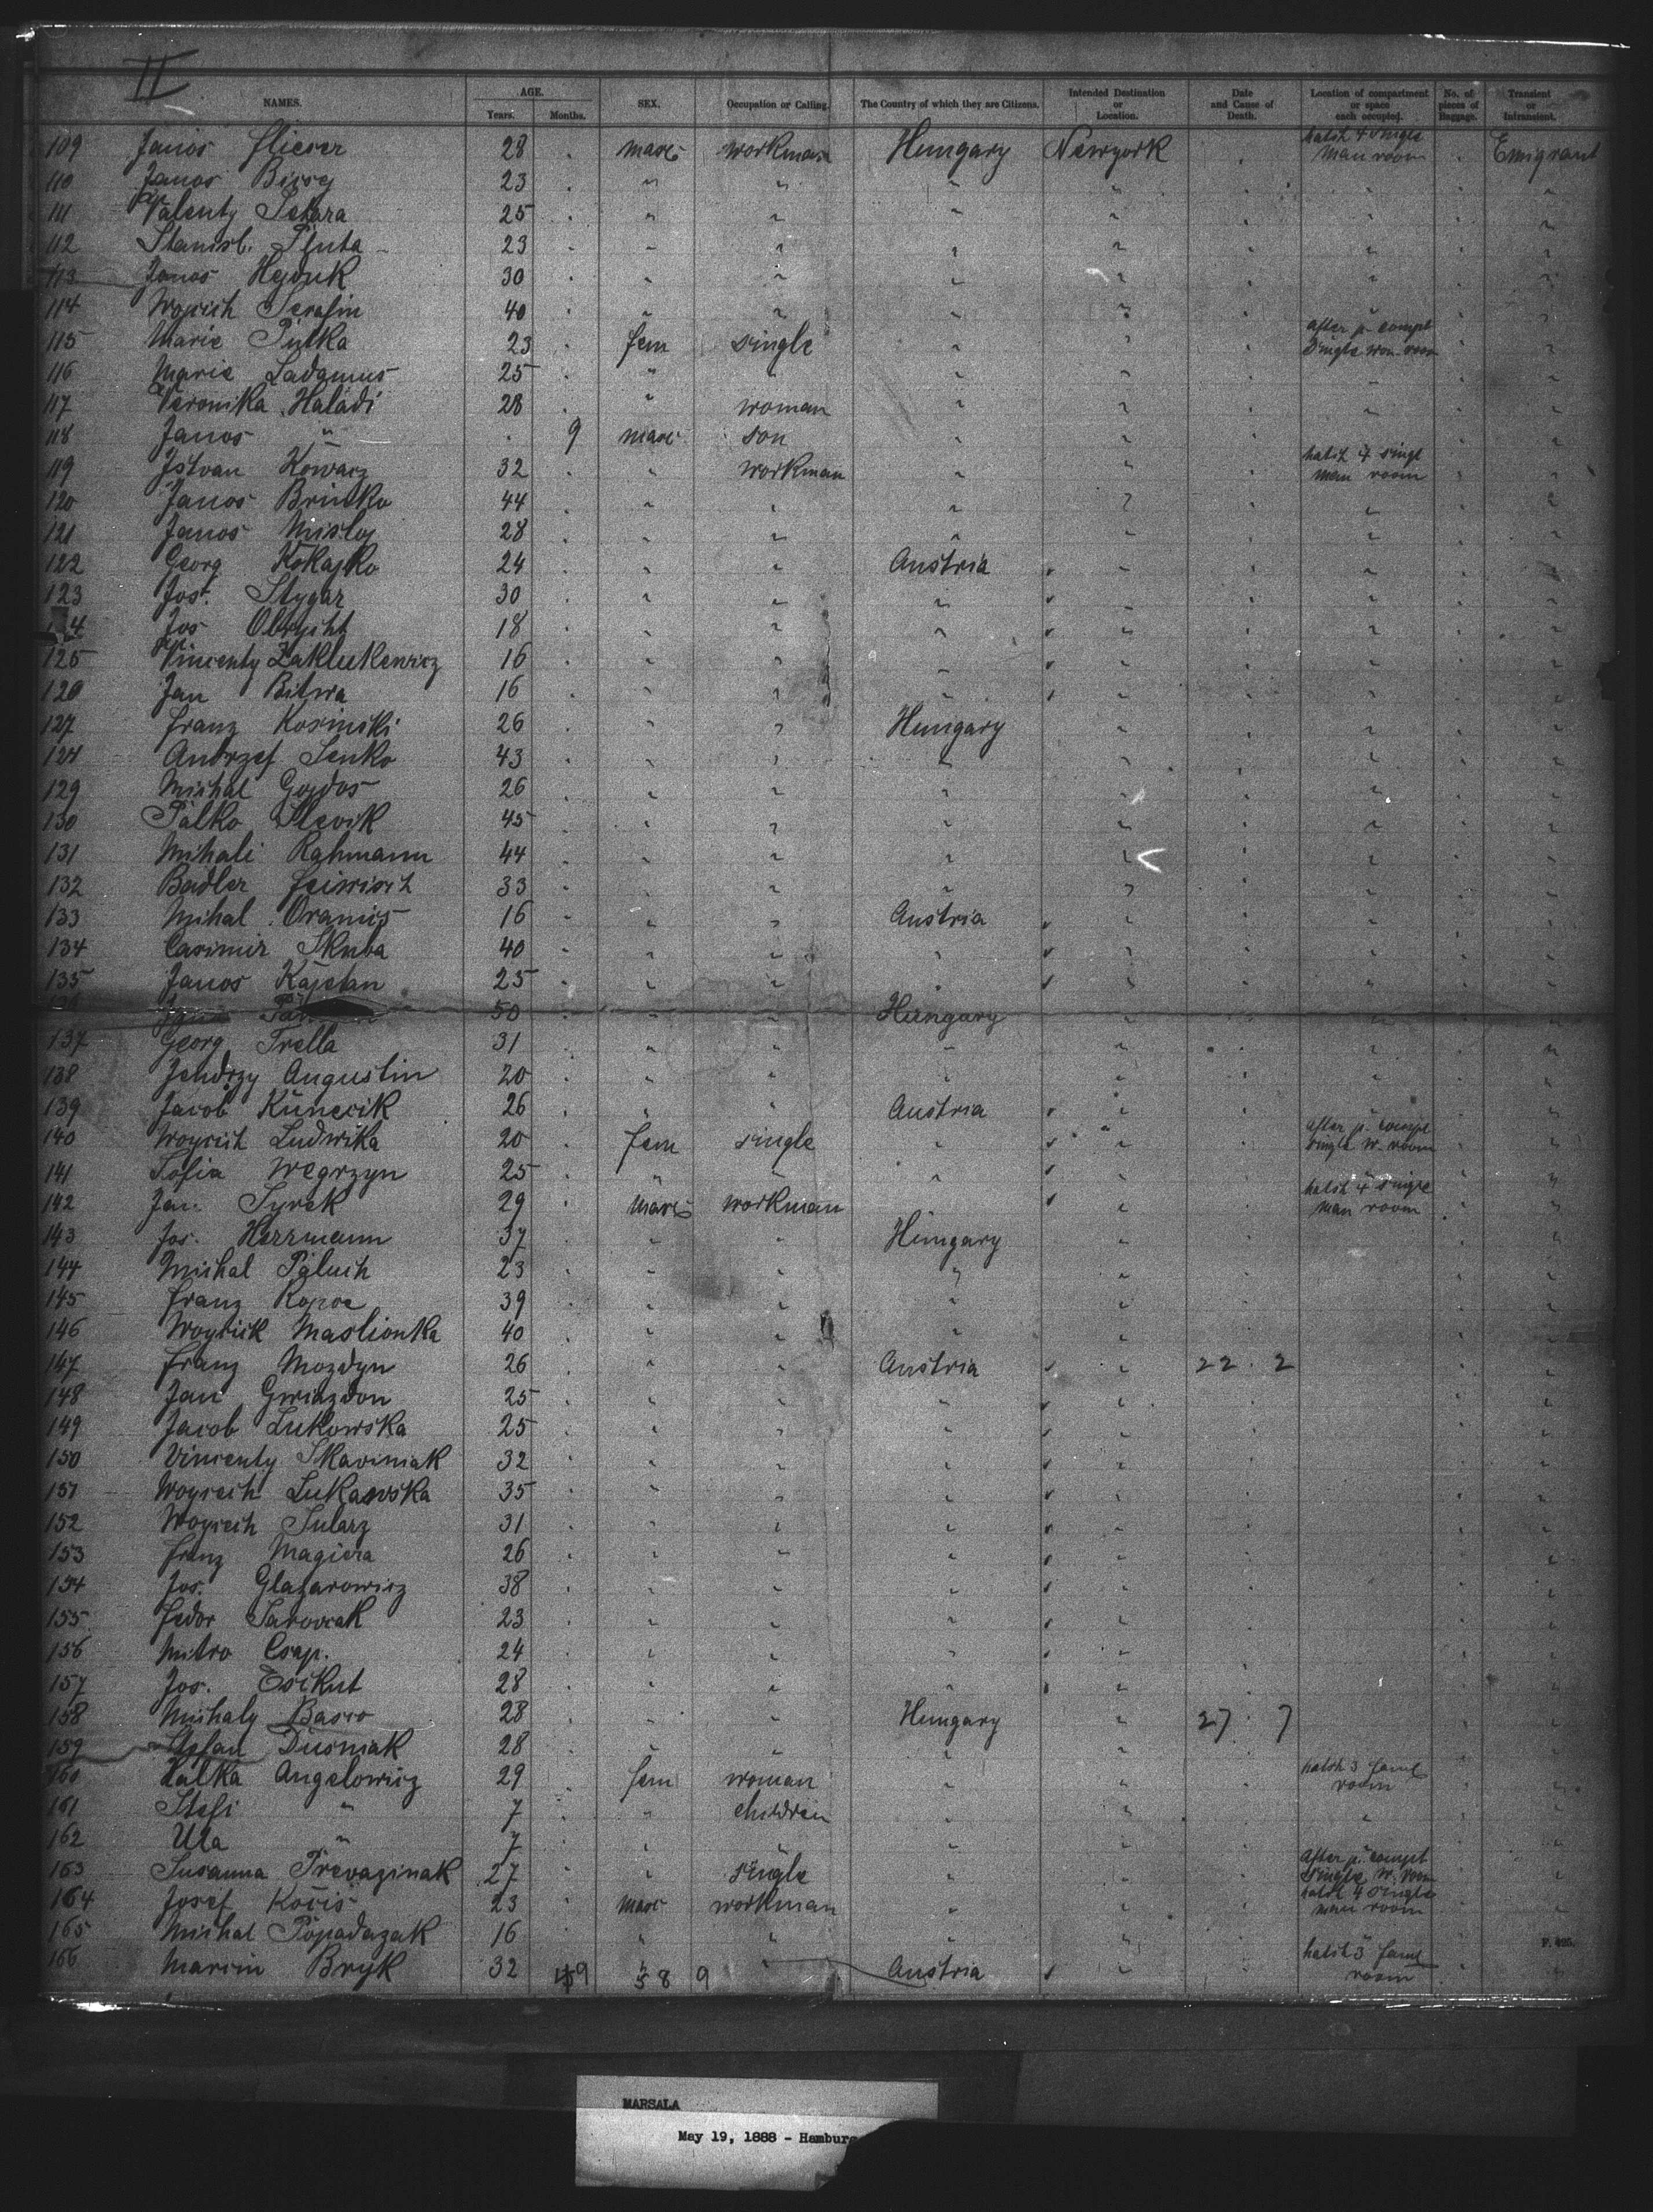 II
NAMES. AGE. Years. Months. SEX. Occupation or Calling. The Country of which they are Citizens. Intended Destination or Location. Date and Cause of Death. Location of compartment or space each occupied. No. of pieces of Baggage. Transient or Intransient.
109 Janos Flieser 28 masc workman Hungary Newyork hatch 4 single man room Emigrant
110 Janos 23 " " " " " "
111 Valenty Setara 25 " " " " " "
112 Stanisl. Pfuta 23 " " " " " "
113 Janos Hejduk 30 " " " " " "
114 Woycich Serafin 40 " " " " " "
115 Marie Putka 23 fem single " " after p. compt single wom room "
116 Marie Ladamus 25 " " " " " "
117 Veronika Haladi 28 " woman " " " "
118 Janos " 9 masc son " " "
119 Istvan Kowacz 32 " workman " " hatch 4 singl man room "
120 Janos Brinko 44 " " " " " "
121 Janos Misloj 28 " " " " " "
122 Georg Kokajko 24 " " Austria " " "
123 Jos. Stygar 30 " " " " " "
124 Jos Obrycht 18 " " " " " "
125 Vincenty Zaklukewicz 16 " " " " " "
126 Jan Bitwa 16 " " " " " "
127 Franz Kosinski 26 " " Hungary " " "
128 Andrzef Senko 43 " " " " " "
129 Michal Gojdos 26 " " " " " "
130 Palko Slevik 45 " " " " " "
131 Mihali Rahmann 44 " " " " " "
132 Badler Feiwisch 33 " " " " " "
133 Mihal Oramis 16 " " Austria " " "
134 Casimir Skuba 40 " " " " " "
135 Janos Kajetan 25 " " " " " "
136 50 " " Hungary " " "
137 Georg Trella 31 " " " " " "
138 Jendrzy Augustin 20 " " " " " "
139 Jacob Kunecik 26 " " Austria " "
140 Woycich Ludwika 20 fem single " " after p. compt single w. room "
141 Sofia Wegrzyn 25 " " " " "
142 Jan Syrek 29 masc workman " hatch 4 single man room "
143 Jos. Herrmann 37 " " Hungary " "
144 Michal Paluch 23 " " " " "
145 Franz Kopoc 39 " " " " "
146 Woycick Maslionka 40 " " " " "
147 Franz Mozdyn 26 " " Austria " 22 . 2 "
148 Jan Gwiazdon 25 " " " " "
149 Jacob Lukowska 25 " " " " "
150 Vincenty Skaviniak 32 " " " " "
151 Woycich Lukawska 35 " " " " "
152 Woycich Sularz 31 " " " " "
153 Franz Magiera 26 " " " " "
154 Jos. Glazarowicz 38 " " " " "
155 Fedor Sarovcak 23 " " " " "
156 Mitro Csap. 24 " " " " "
157 Jos. Esikut 28 " " " " "
158 Mihaly Basco 28 " " Hungary " 27 . 7 "
159 Dusniak 28 " " " " "
160 Halka Angelowicz 29 fem woman " " hatch 3 faml room "
161 Stefi " 7 " children " " " "
162 " 7 " " " " " "
163 Susanna Prevazinak 27 " single " " after p. compt single w. room "
164 Josef Kocis 23 masc workman " " hatch 4 single man room "
165 Michal Popadazak 16 " " " " "
F. 425.
166 Marcin Bryk 32 " " Austria " hatch 3 faml room "
MARSALA
May 19, 1888 - Hamburg